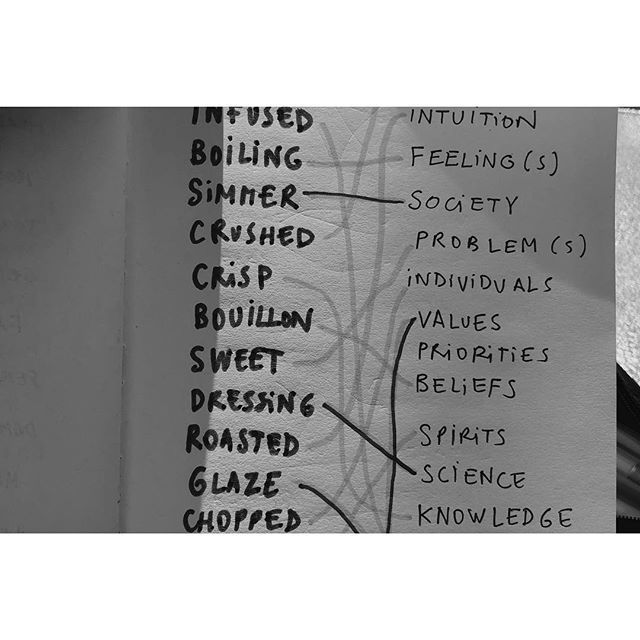 INFUSED
BOILING
SIMMER
CRUSHED
CRISP
BOUILLON
SWEET
DRESSING
ROASTED
GLAZE
CHOPPED
INTUITION
FEELING(S)
SOCIETY
PROBLEM(S)
INDIVIDUALS
VALUES
PRIORITIES
BELIEFS
SPIRITS
SCIENCE
KNOWLEDGE